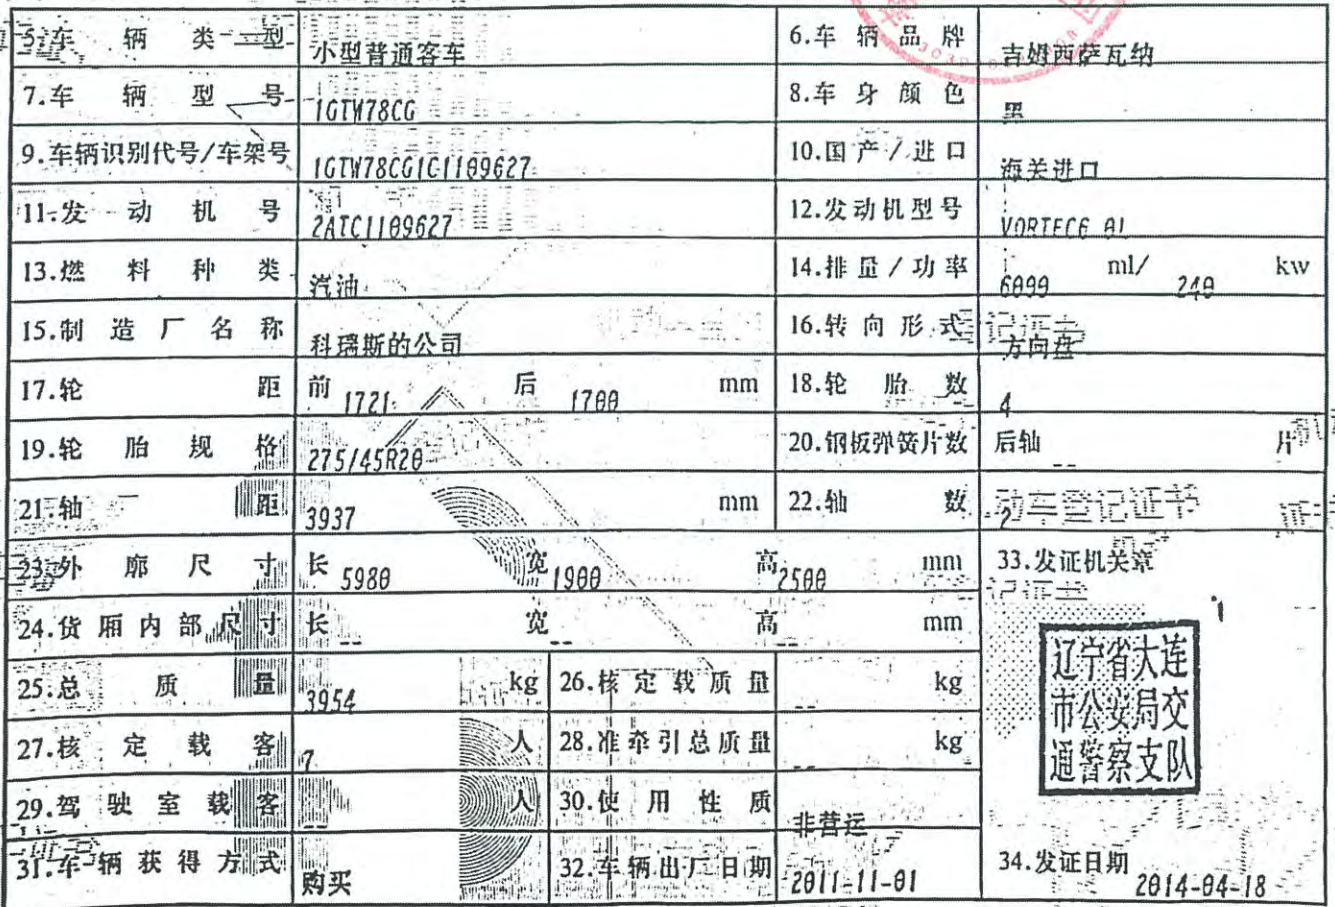 5.车辆类型 小型普通客车 6.车辆品牌 吉姆西萨瓦纳
7.车辆型号 1GTW78CG 8.车身颜色 黑
9.车辆识别代号/车架号 1GTW78CG1C1109627 10.国产/进口 海关进口
11.发动机号 2ATC1109627 12.发动机型号 VORTEC6.0L
13.燃料种类 汽油 14.排量/功率 6000 ml/ 240 kw
15.制造厂名称 科瑞斯的公司 16.转向形式 方向盘
17.轮距 前 1721 后 1700 mm 18.轮胎数 4
19.轮胎规格 275/45R20 20.钢板弹簧片数 后轴 -- 片
21.轴距 3937 mm 22.轴数 2
23.外廓尺寸 长 5980 宽 1900 高 2500 mm 33.发证机关章
24.货厢内部尺寸 长 -- 宽 -- 高 -- mm
辽宁省大连
市公安局交
通警察支队
25.总质量 3954 kg 26.核定载质量 -- kg
27.核定载客 7 人 28.准牵引总质量 -- kg
29.驾驶室载客 -- 人 30.使用性质 非营运
31.车辆获得方式 购买 32.车辆出厂日期 2011-11-01 34.发证日期 2014-04-18